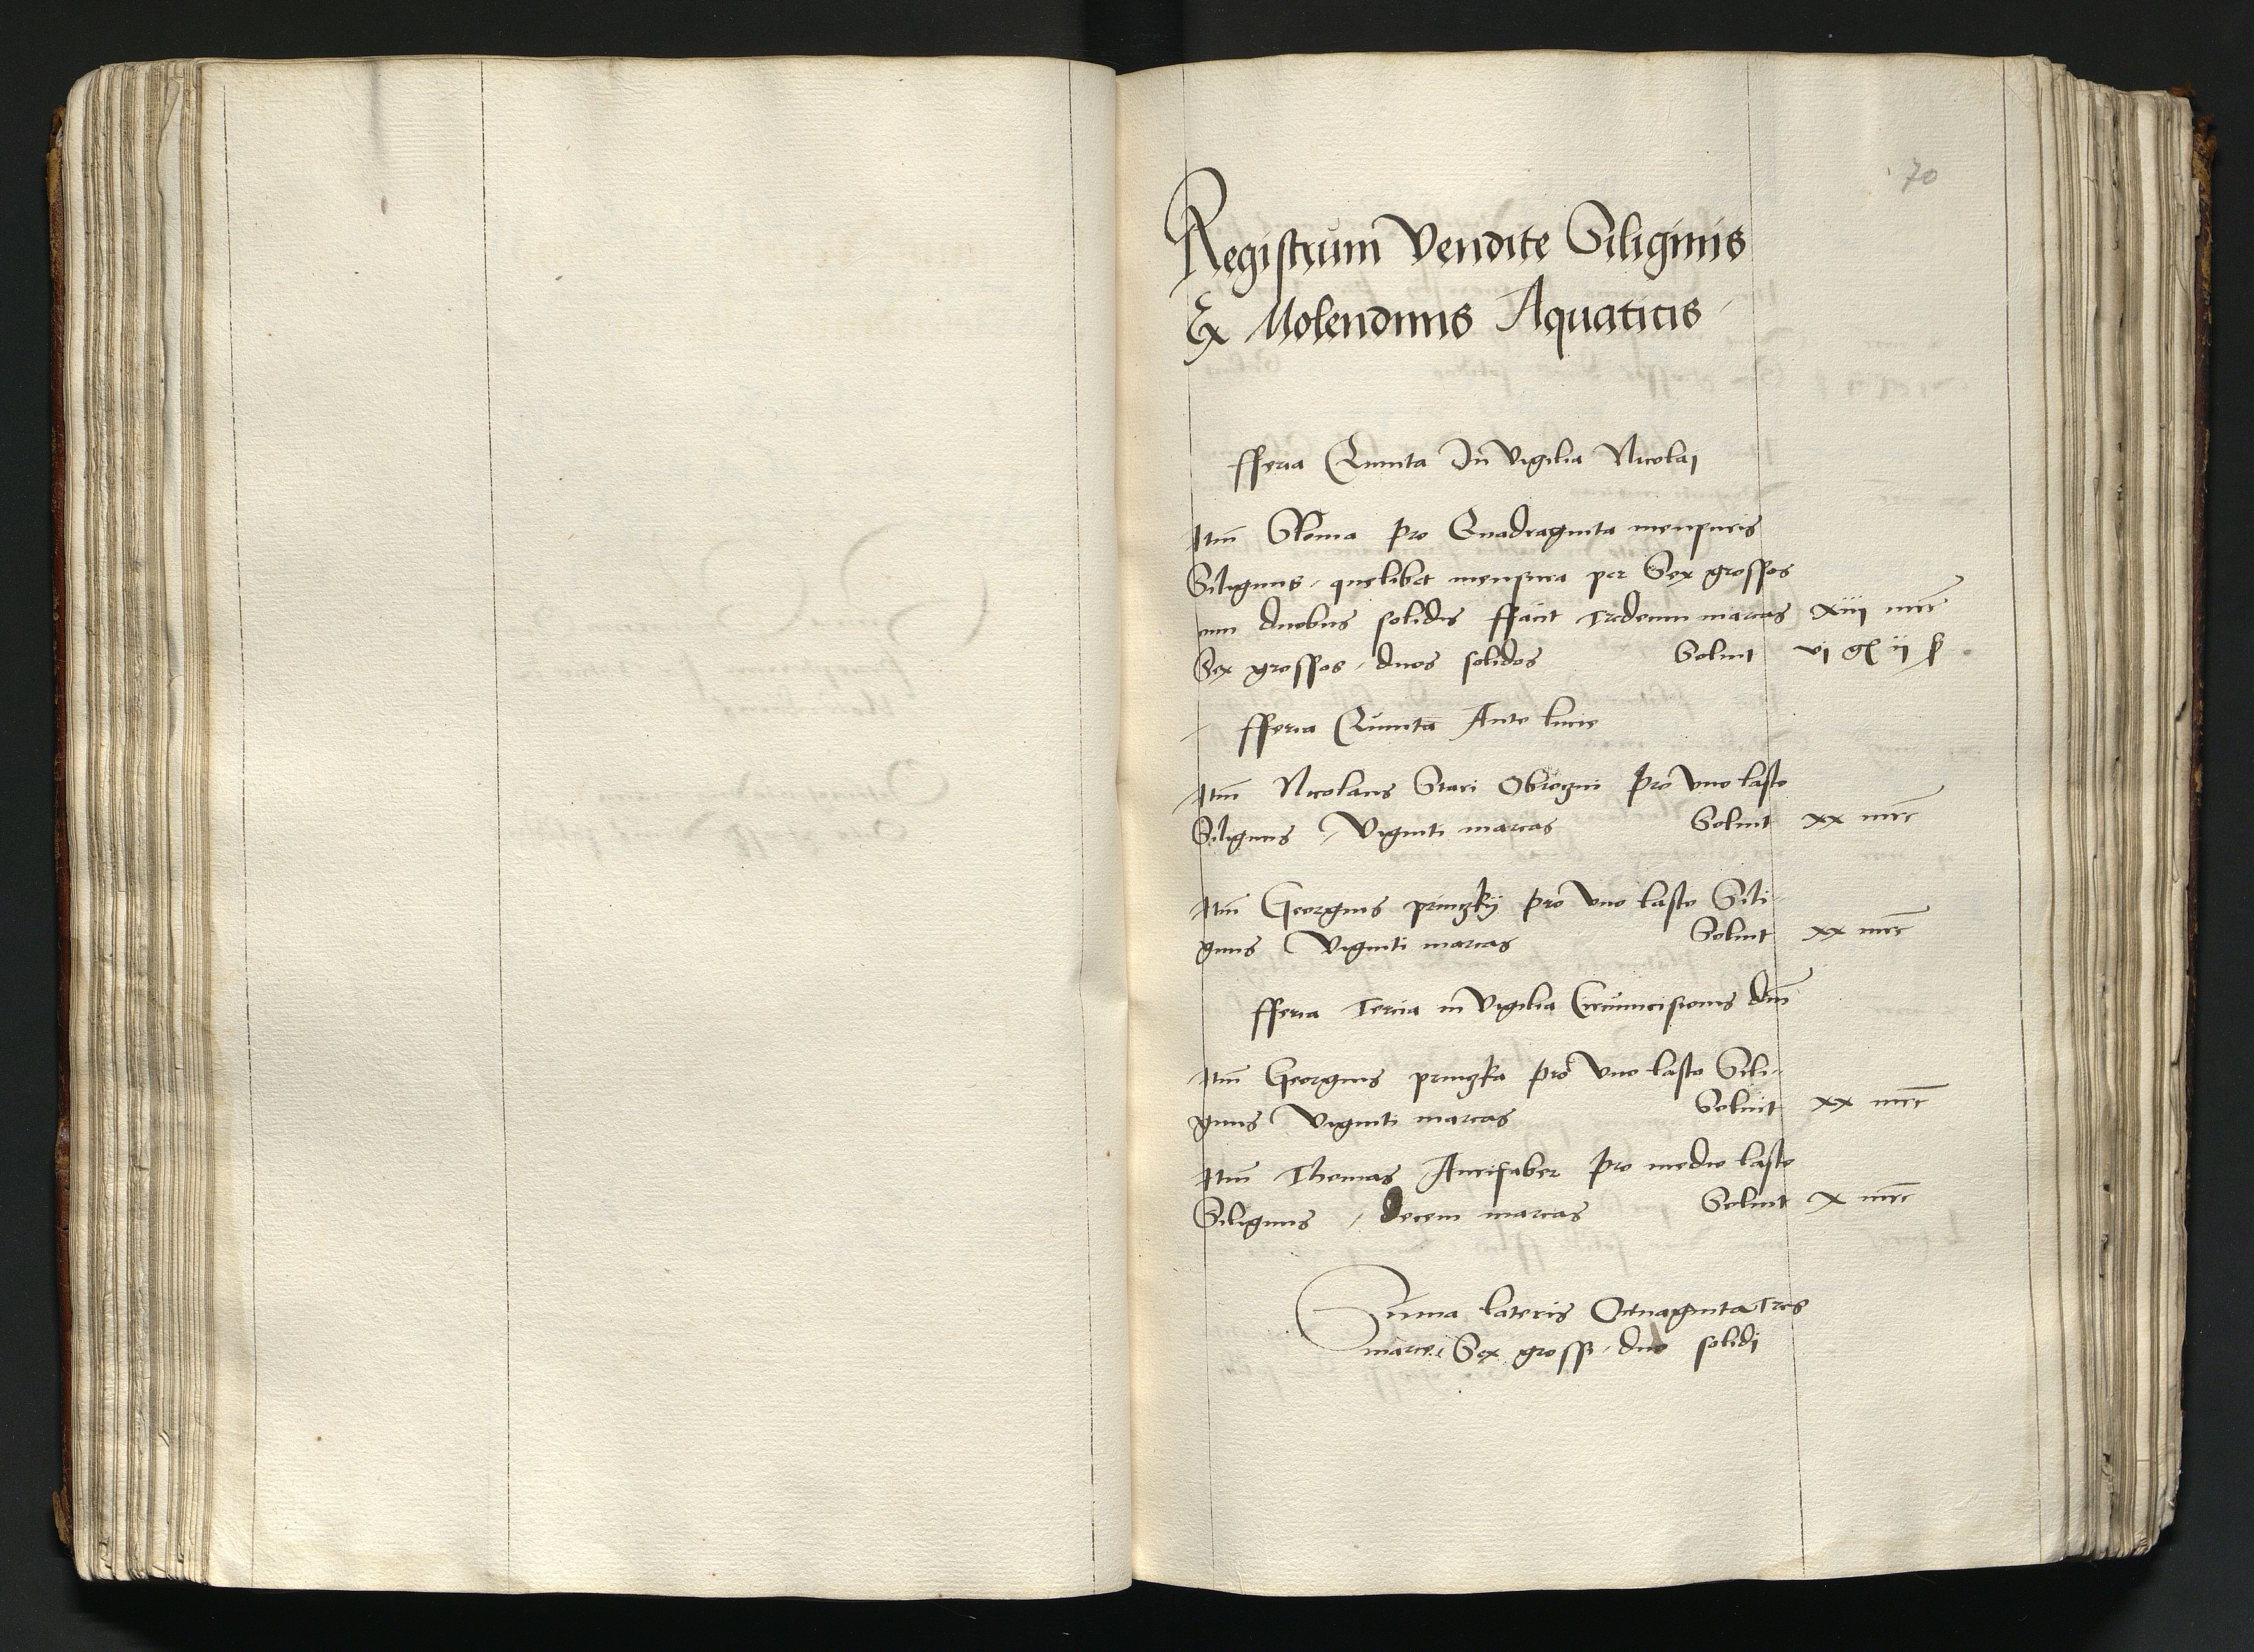 70
Registrum Vendite Siliginis
Ex Molendinis Aquaticis
fferia Quinta In Vigilia Nicolaj
Itm Sloma pro Quadraginta mensuris
Siliginis, quelibet mensura per Sex grossos
cum duobus solidis ffacit Tredecim marcas xiij mrc
Sex grossos, duos solidos Soluit vj gℓ ij ß
fferia Quinta Ante lucie
Itm Nicolaus Stari Obroczni pro vno lasto
Siliginis, Viginti marcas Soluit xx mrc
Itm Georgius princzkij pro vno lasto Sili-
ginis Viginti marcas Soluit xx mrc
fferia Tercia in Vigilia Circumcisionis dni
Itm Georgius princzka pro vno lasto Sili-
ginis Viginti marcas Soluit xx mrc
Itm Thomas Aurifaber pro medio lasto
Siliginis, decem marcas Soluit x mrc
Suma lateris Octuaginta Tres
marce, Sex gross, duo solidi